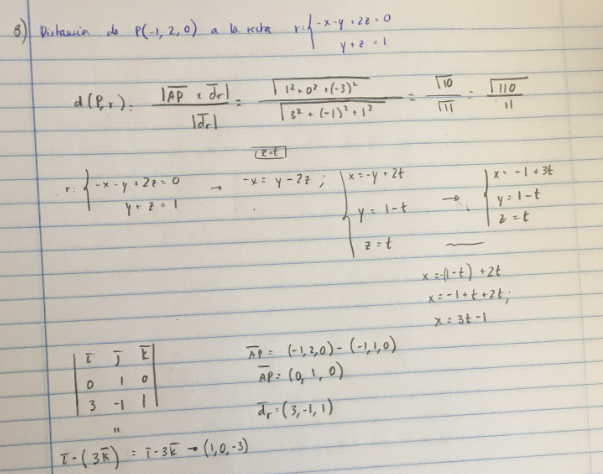 8) Distancia de P(-1, 2, 0) a la recta r: { -x-y+2z=0
y+z=1
d(P,r) = |AP x dr| / |dr| = √(1²+0²+(-3)²) / √(3²+(-1)²+1²) = √10 / √11 = √110 / 11
z=t
r: { -x-y+2z=0 → -x = y-2z ; { x=-y+2t → { x=-1+3t
y+z=1 y=1-t y=1-t
z=t z=t
x=-(1-t)+2t
x=-1+t+2t;
x=3t-1
| i j k | AP = (-1,2,0) - (-1,1,0)
| 0 1 0 | AP = (0, 1, 0)
| 3 -1 1 | dr = (3,-1,1)
"
i-(3k) = i-3k → (1,0,-3)